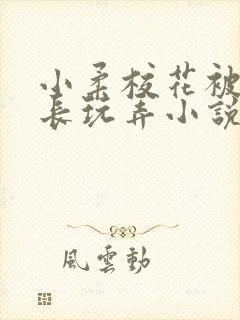 小柔校花被
長玩弄小說
風雲動